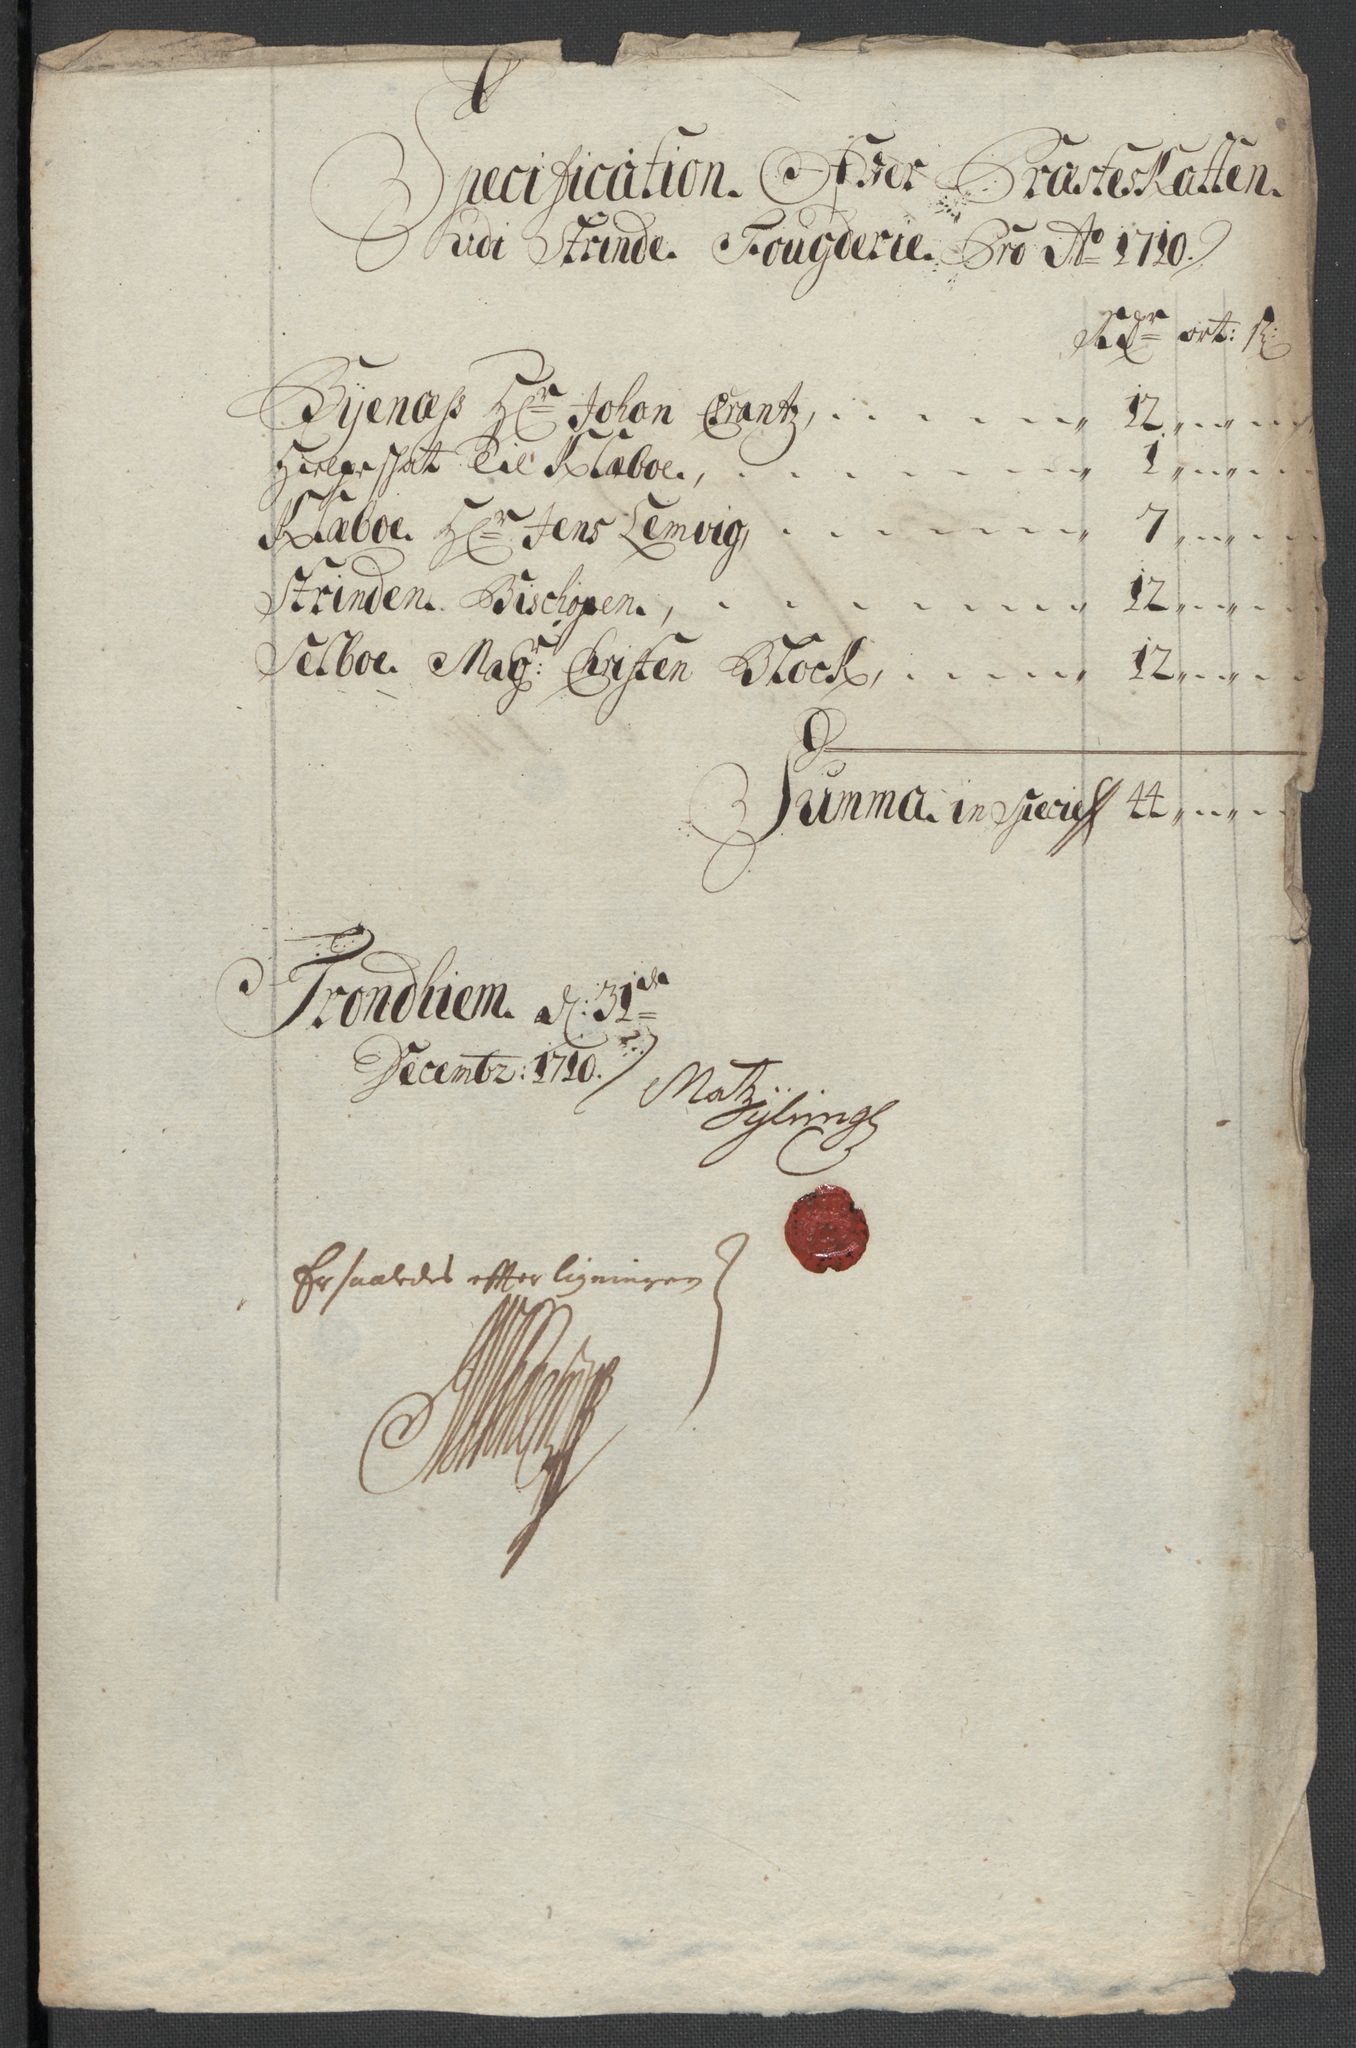 Specification. Ofver Præsteskatten.
udi Strinde. Fougderie. Pro Ao 1710.
Rdr ort: s:
Byenæs Hr Johan Crantz, 12
Hielpe skat Til Klæboe, 1
Klæboe. Hr Jens Lemvig, 7
Strinden. Bischopen, 12
Selboe. Magr: Christen Block, 12
Summa. in specie 44
Trondhiem. d: 31de
Decembr: 1710.
Er saaledes efter ligningen